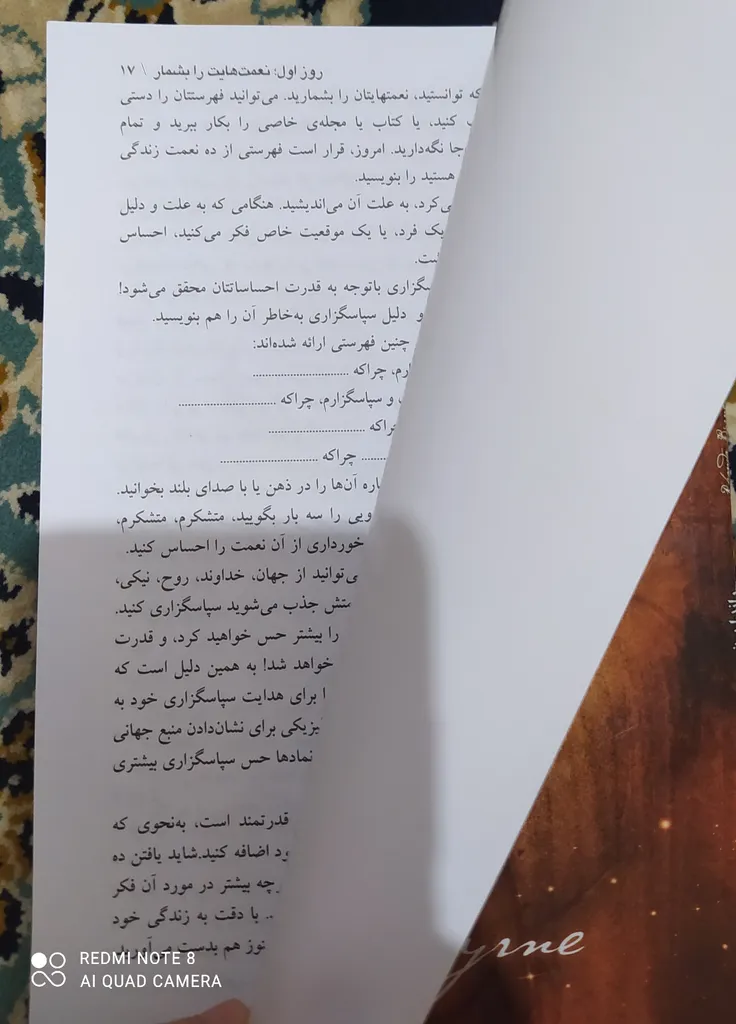 روز اول: نعمت‌هایت را بشمار \ ۱۷
که توانستید، نعمتهایتان را بشمارید. می‌توانید فهرستتان را دستی
کنید، یا کتاب یا مجله‌ی خاصی را بکار ببرید و تمام
جا نگه‌دارید. امروز، قرار است فهرستی از ده نعمت زندگی
هستید را بنویسید.
ی‌کرد، به علت آن می‌اندیشید. هنگامی که به علت و دلیل
یک فرد، یا یک موقعیت خاص فکر می‌کنید، احساس
ست.
سگزاری باتوجه به قدرت احساساتتان محقق می‌شود!
و دلیل سپاسگزاری به‌خاطر آن را هم بنویسید.
چنین فهرستی ارائه شده‌اند:
رم، چراکه ..............................
و سپاسگزارم، چراکه ..............................
راکه ..............................
........ چراکه ..............................
اره آن‌ها را در ذهن یا با صدای بلند بخوانید.
ویی را سه بار بگویید، متشکرم، متشکرم،
خورداری از آن نعمت را احساس کنید.
ی‌توانید از جهان، خداوند، روح، نیکی،
ستش جذب می‌شوید سپاسگزاری کنید.
را بیشتر حس خواهید کرد، و قدرت
خواهد شد! به همین دلیل است که
ا برای هدایت سپاسگزاری خود به
یزیکی برای نشان‌دادن منبع جهانی
نمادها حس سپاسگزاری بیشتری
قدرتمند است، به‌نحوی که
ود اضافه کنید.شاید یافتن ده
رچه بیشتر در مورد آن فکر
.. با دقت به زندگی خود
نوز هم بدست می‌آورید.
yrne
REDMI NOTE 8
AI QUAD CAMERA